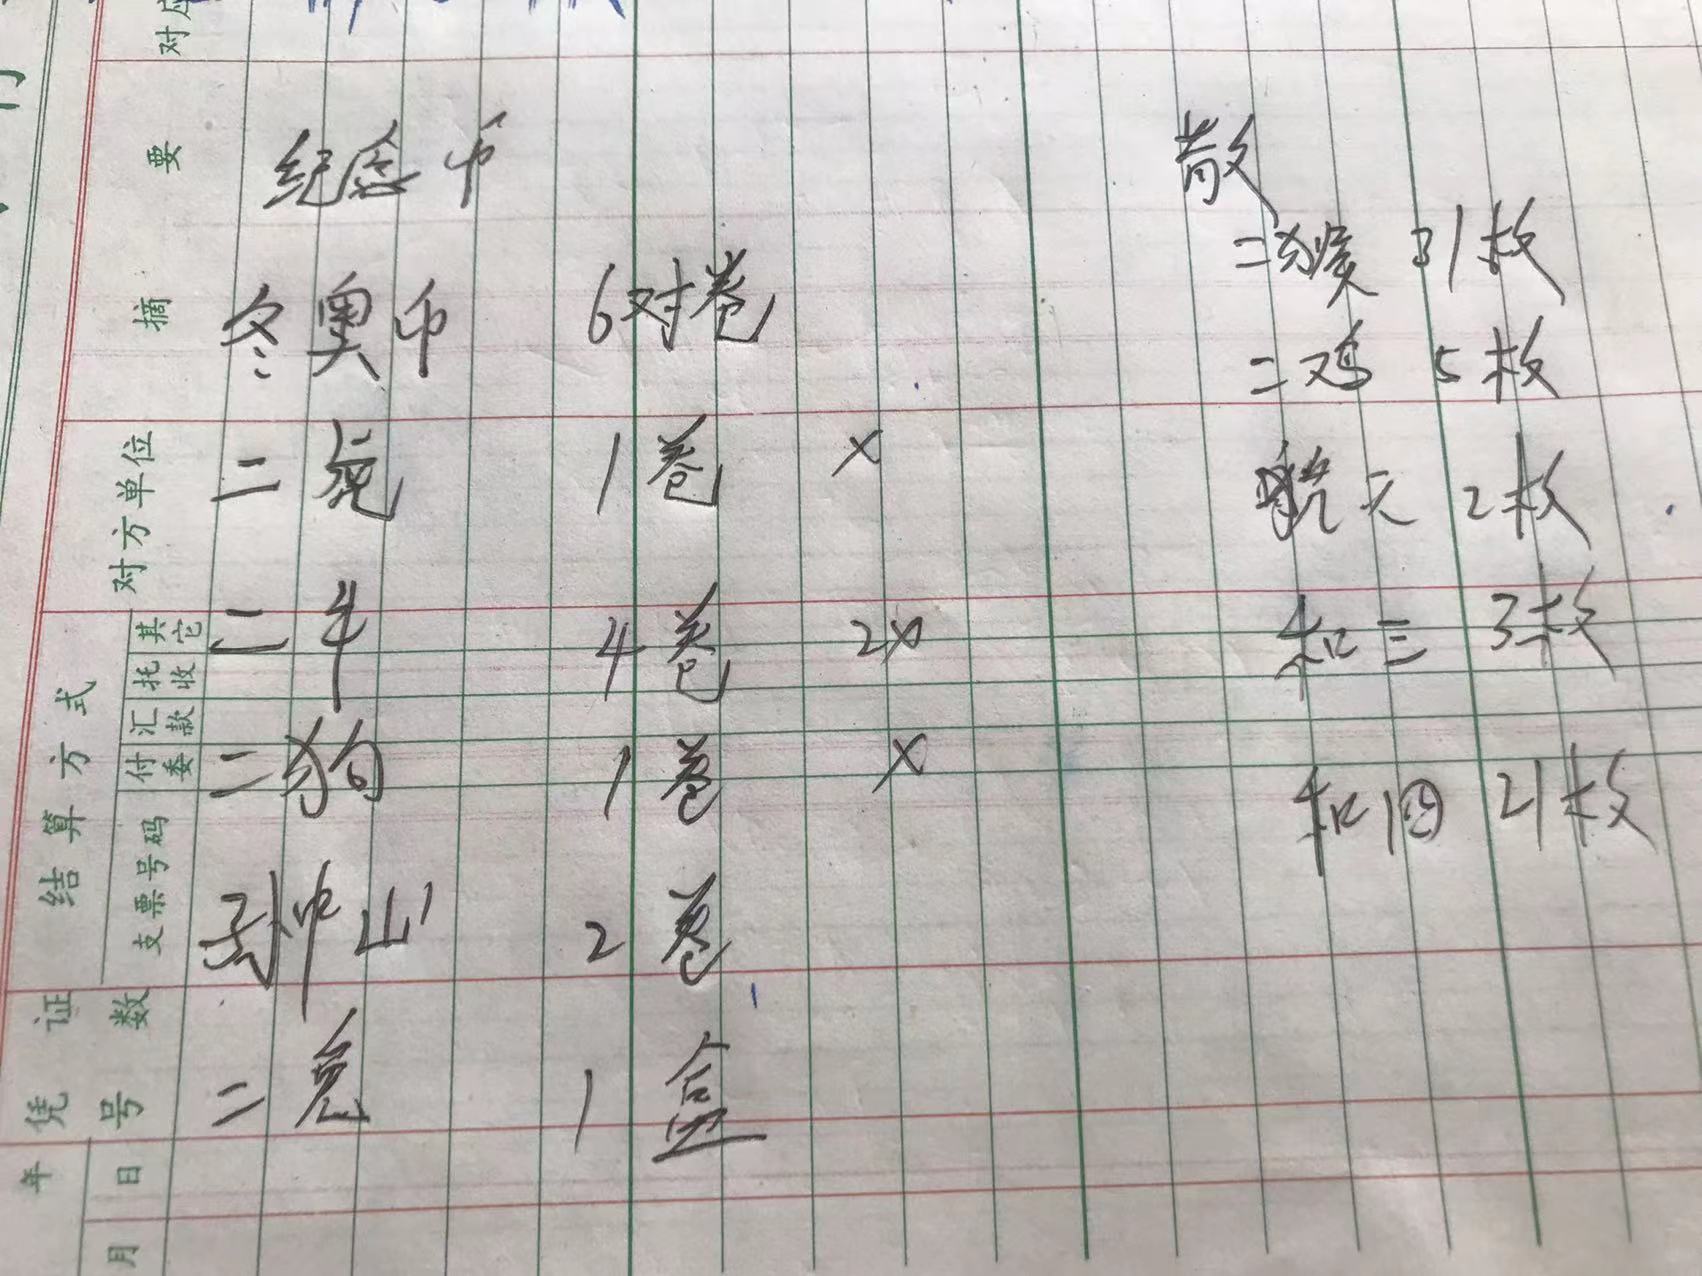 纪念币
冬奥币 6对卷
二虎 1卷 x
二牛 4卷 2x
二狗 1卷 x
孙中山 2卷
二兔 1盒
散
二猴 31枚
二鸡 5枚
航天 2枚
和三 3枚
和四 21枚
对应
摘要
对方单位
结算方式
其它
托收
汇款
付委
支票号码
凭证
号数
年
月日